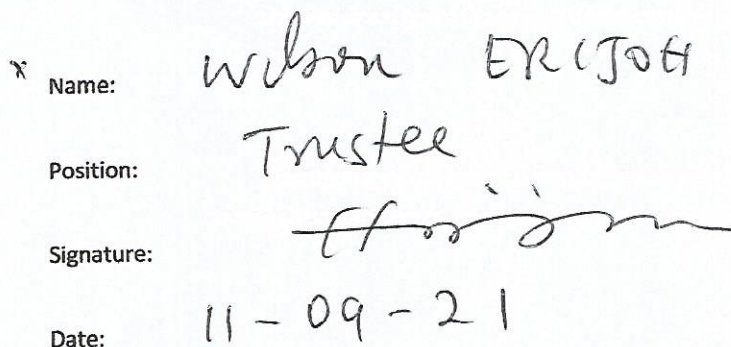 x Name: Wilson ERIJOH
Position: Trustee
Signature:
Date: 11-09-21